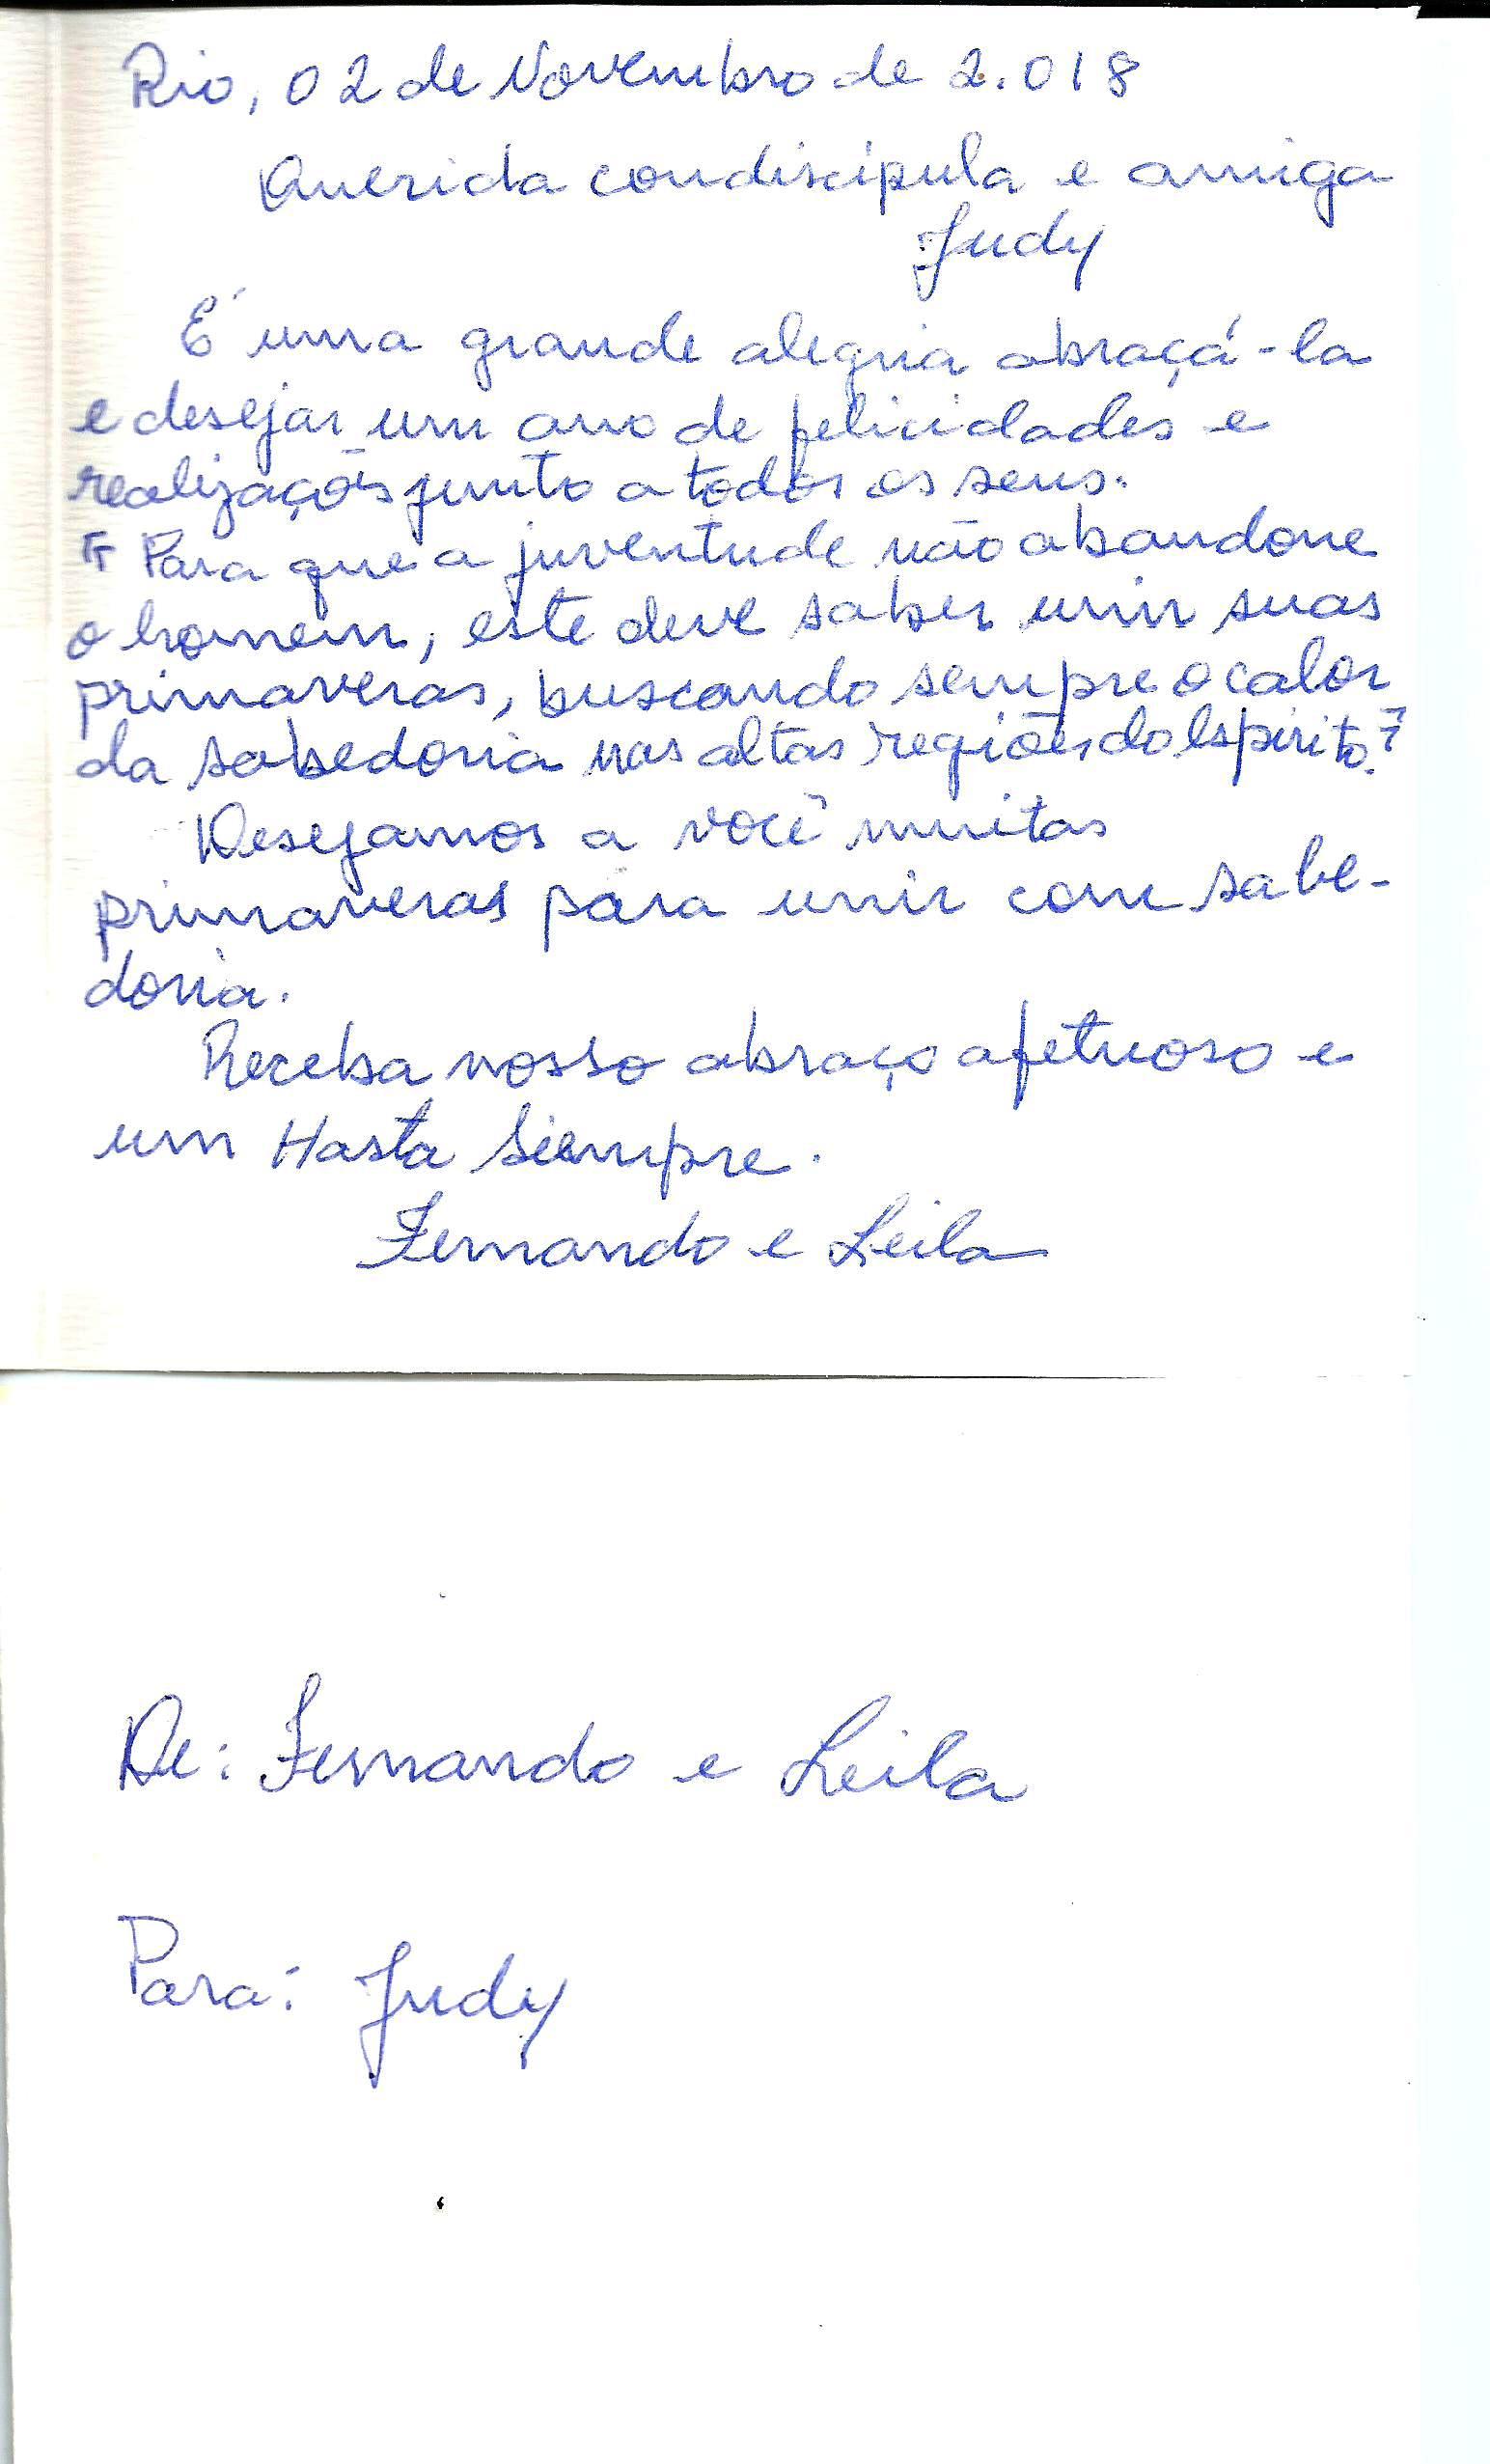 Rio, 02 de Novembro de 2.018
Querida condiscípula e amiga
Judy
É uma grande alegria abraçá-la
e desejar um ano de felicidades e
realizações junto a todos os seus.
" Para que a juventude não abandone
o homem, este deve saber unir suas
primaveras, buscando sempre o calor
da sabedoria nas altas regiões do Espírito."
Desejamos a você muitas
primaveras para unir com sabe-
doria.
Receba nosso abraço afetuoso e
um Hasta Siempre.
Fernando e Leila
De: Fernando e Leila
Para: Judy